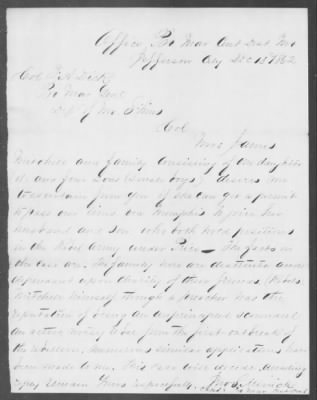 Office Pro Mar Cent Dist Mo
Jefferson City Dec 15 1862
Col F A Dick
Pro Mar Genl
Dept of Mo St Louis
Col
Mrs James
and family consisting of one daughter
and four sons (small boys,) desires me
to ascertain from you if she can get a permit
to pass our lines via Memphis to join her
husband and son who both hold positions
in the Rebel Army under Price — The facts in
the case are. The family here are destitute and
dependant upon charity of their friends (Rebels
himself though a preacher has the
reputation of being an unprincipled scoundrel
an active rebel from the first outbreak of
the rebellion, numerous similar applications have
been made to me. This case will decide. awaiting
reply remain Yours respectfully.